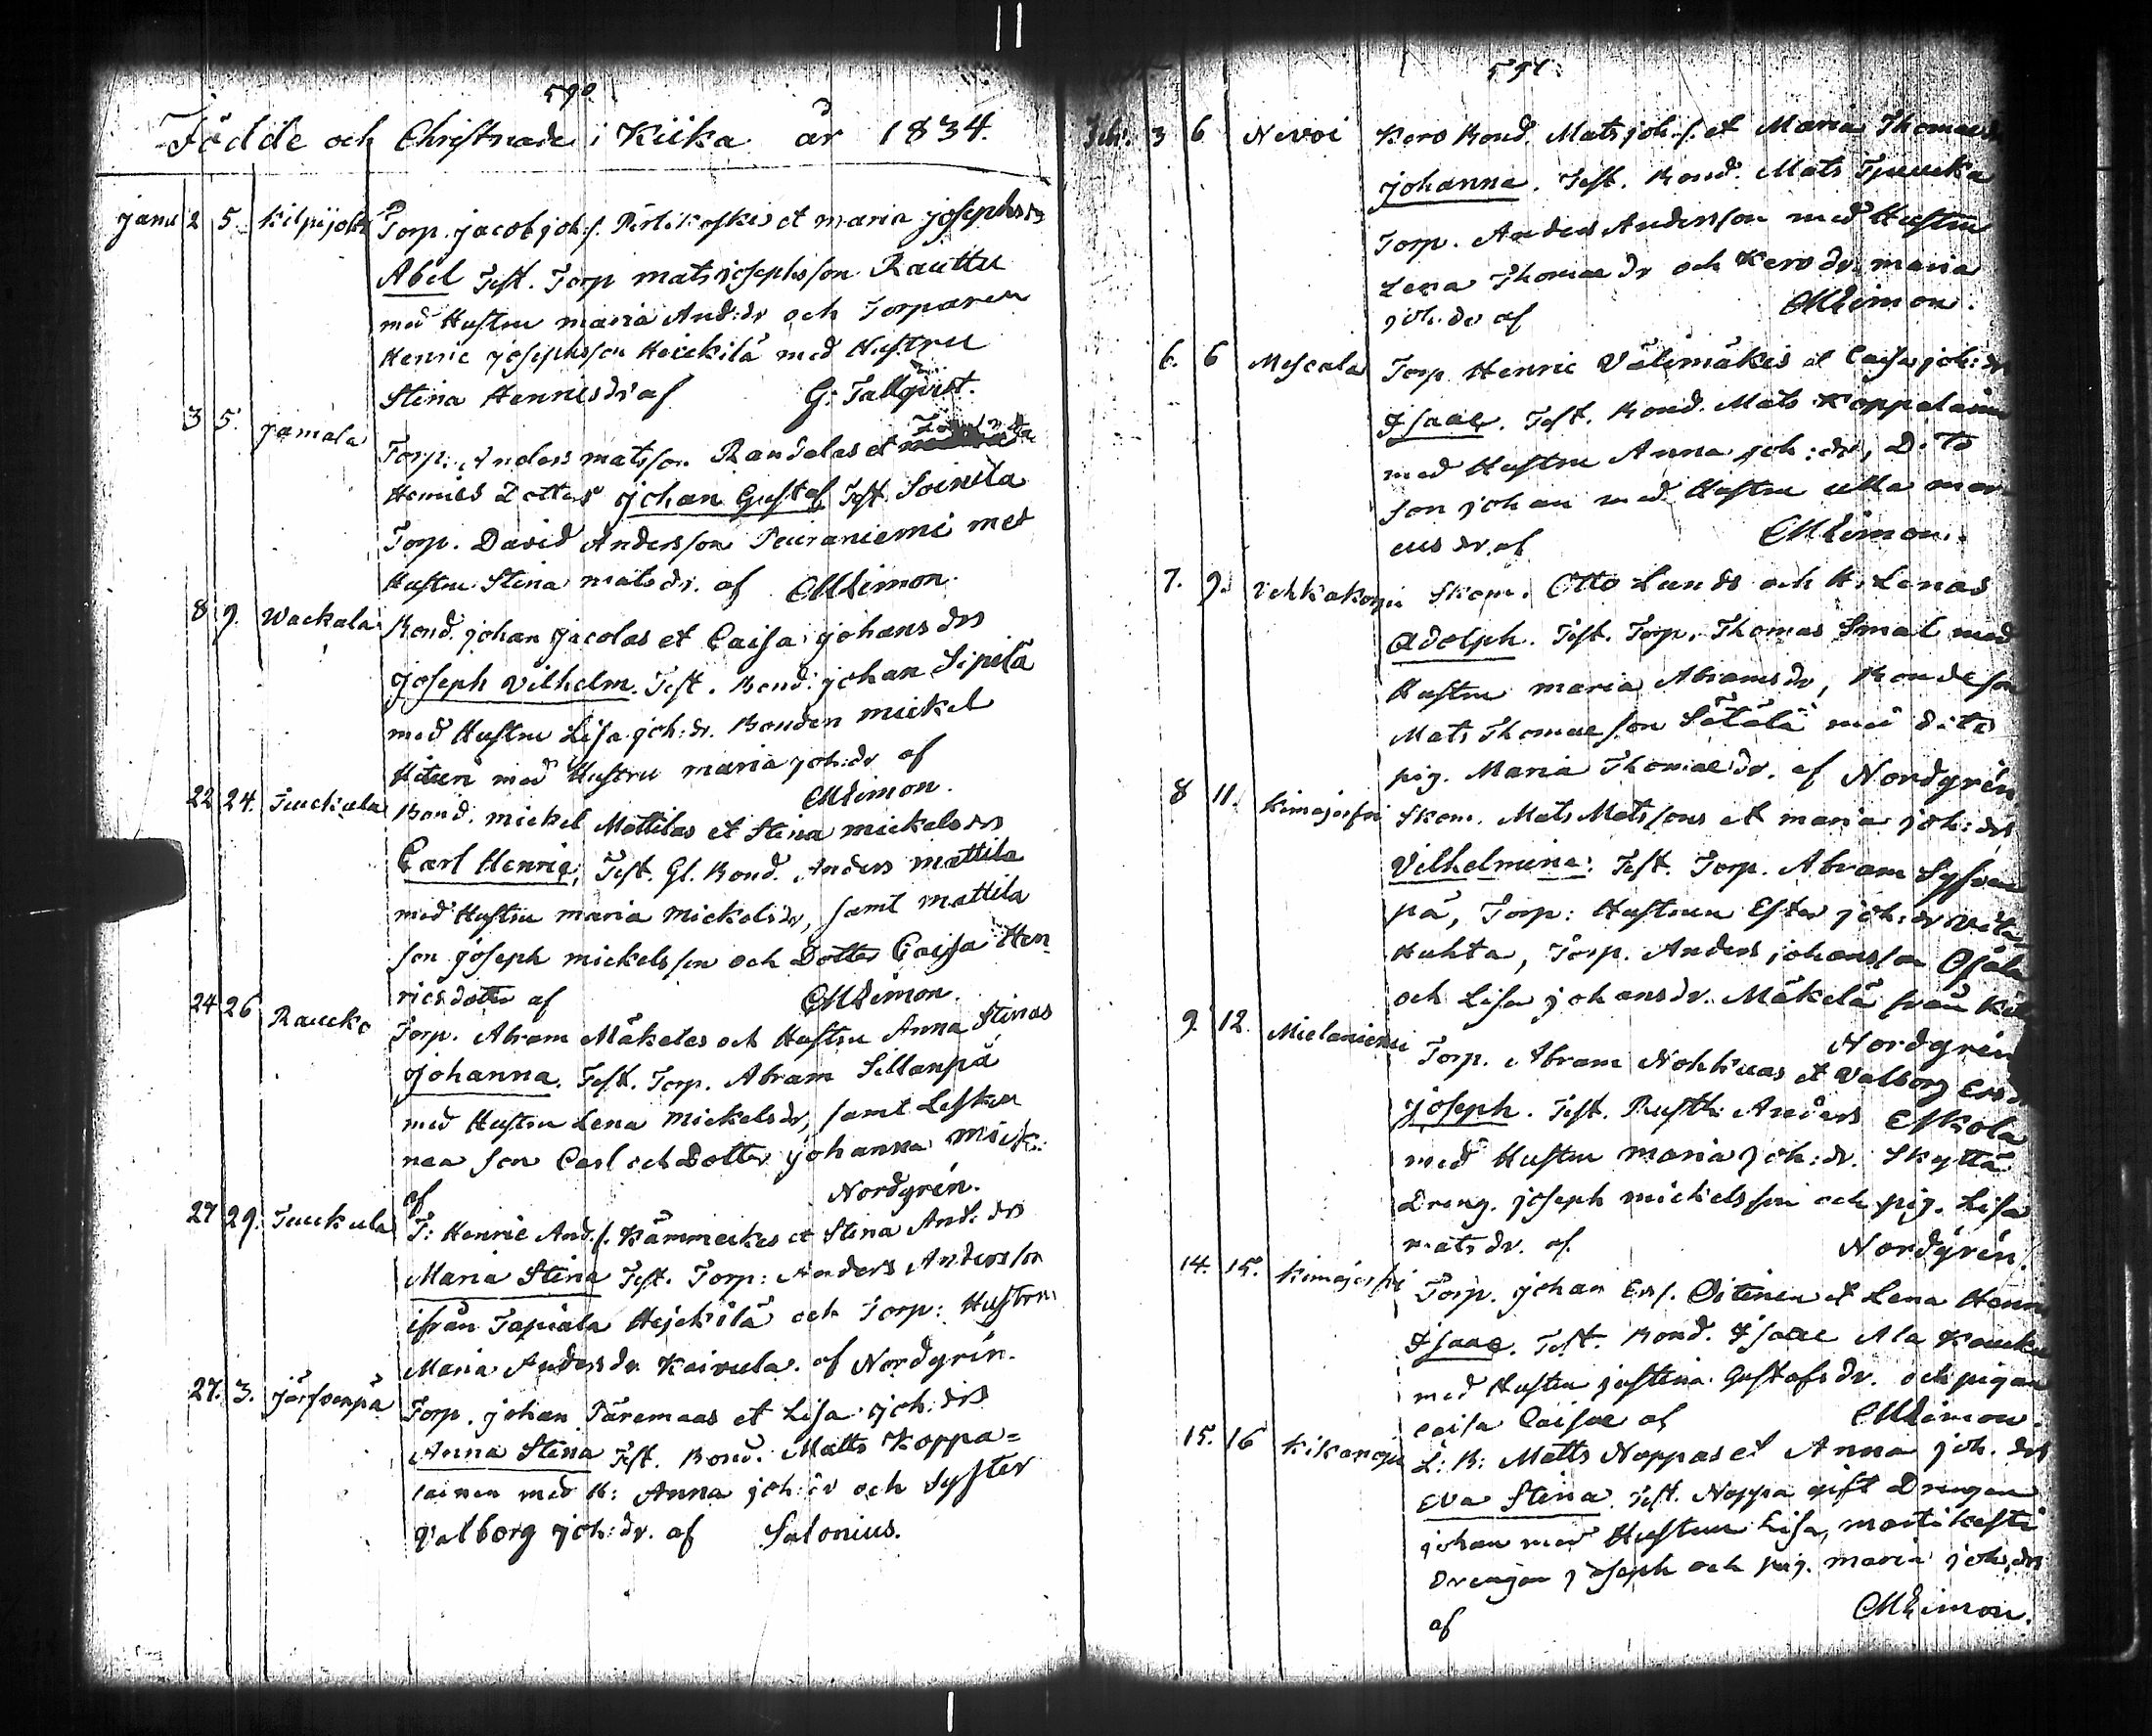 590.
Födde och Christnade i Kiika år 1834.
janu 2 5. Kilpijoki Torp. jacob joh:s. Pertikoskis et maria josephs drs
Abel Test. Torp mats josephsson Rauttu
med Hustru maria And:dr och Torparen
Henric josephsson Heickilä med Hustru
Stina Henricsdr af G. Tallqvist.
3 5. jamala Torp. Anders matsson Randalas et
Henrics Dotters johan Gustaf Test. Soinila
Torp. David Andersson Pairaniemi met
Hustru Stina matsdr. af CMLimon.
8 9. Wackala Bond. johan jacolas et Caisa johans drs
joseph Vilhelm. Test. Bond. johan Sipilä
med Hustru Lisa joh:dr. Bonden mickel
Hituri med Hustru maria joh:dr af
CMLimon.
22 24. Juckula Bond. mickel Mattilas et Stina mickels drs
Carl Henric; Test. Gl. Bond. Anders mattila
med Hustru maria mickelsdr, samt mattila
son joseph mickelsson och Dotter Caisa Hen
ricsdotter af CMLimon.
24 26 Raucko Torp. Abram Mäkelas och Hustru Anna Stinas
johanna. Test. Torp. Abram Sillanpä
med Hustru Lena mickelsdr, samt
son Carl och Dotter johanna Mick:
af Nordgrén.
27 29. Juckula T: Henric And.s. Kämmeckes et Stina And: drs
Maria Stina Test. Torp: Anders Andersson
ifrån Tapiala Hejckilä och Torp: Hustru
Maria Andersdr Koivula. af Nordgrén.
27. 3. järfvenpä Torp. johan Päremaas et Lisa joh: drs
Anna Stina Test. Bond. Matts Koppa=
lainen med H: Anna joh:dr och Syster
Valborg joh:dr. af Salonius.
591.
Feb: 3 6 Nevoi Kero Bond. Mats joh.s. et Maria Thomae
johanna. Test. Bond. Mats
Torp. Anders Andersson med Hustru
Lena Thomae dr och Kero dr. maria
joh. dr af CMLimon.
6. 6 Mescala Torp Henric Välimäkis et Caisa joh: dr
Isaac. Test. Bond. Mats Koppalainen
med Hustru Anna joh: dr, D:to
son johan med Hustru Ulla mari
eus dr. af CMLimon.
7. 9. Vehkakorpi Skom. Otto Lunds och H. Lenas
Adolph. Test. Torp. Thomas Smal med
Hustru maria Abramsdr, Bondeson
Mats Thomae son Sätälä med dito
pig. Maria Thomae dr. af Nordgrén
8 11. Kimajerfvi Skom. Mats Matssons et maria joh: drs
Vilhelmina: Test. Torp. Abram
pä, Torp: Hustrun Ester joh: dr
Huhta, Torp. Anders johansson Ojala
och Lisa johansdr. Mäkelä från
Nordgrén
9. 12. Mielaniemi Torp. Abram Nohkuas et Valborg Ers
joseph. Test. Rusth. Anders Eskola
med Hustru maria joh: dr. Skyttä
Dreng. joseph mickelsson och pig. Lisa
matsdr. af Nordgrén.
14. 15. Kimajerfvi Torp. johan Ers. Oitinen et Lena Henri
Isaac. Test. Bond. Isaac Ala Kaucka
med Hustru justina Gustafsdr. och pigan
Caisa Caisae af CMLimon.
15. 16 Kikanoja L: B: Matts Noppas et Anna joh. drs
Eva Stina. Test. Noppa gift Drengen
johan med Hustrun Lisa, martikesti
Drengen joseph och pig. maria joh. drs
af CMLimon.